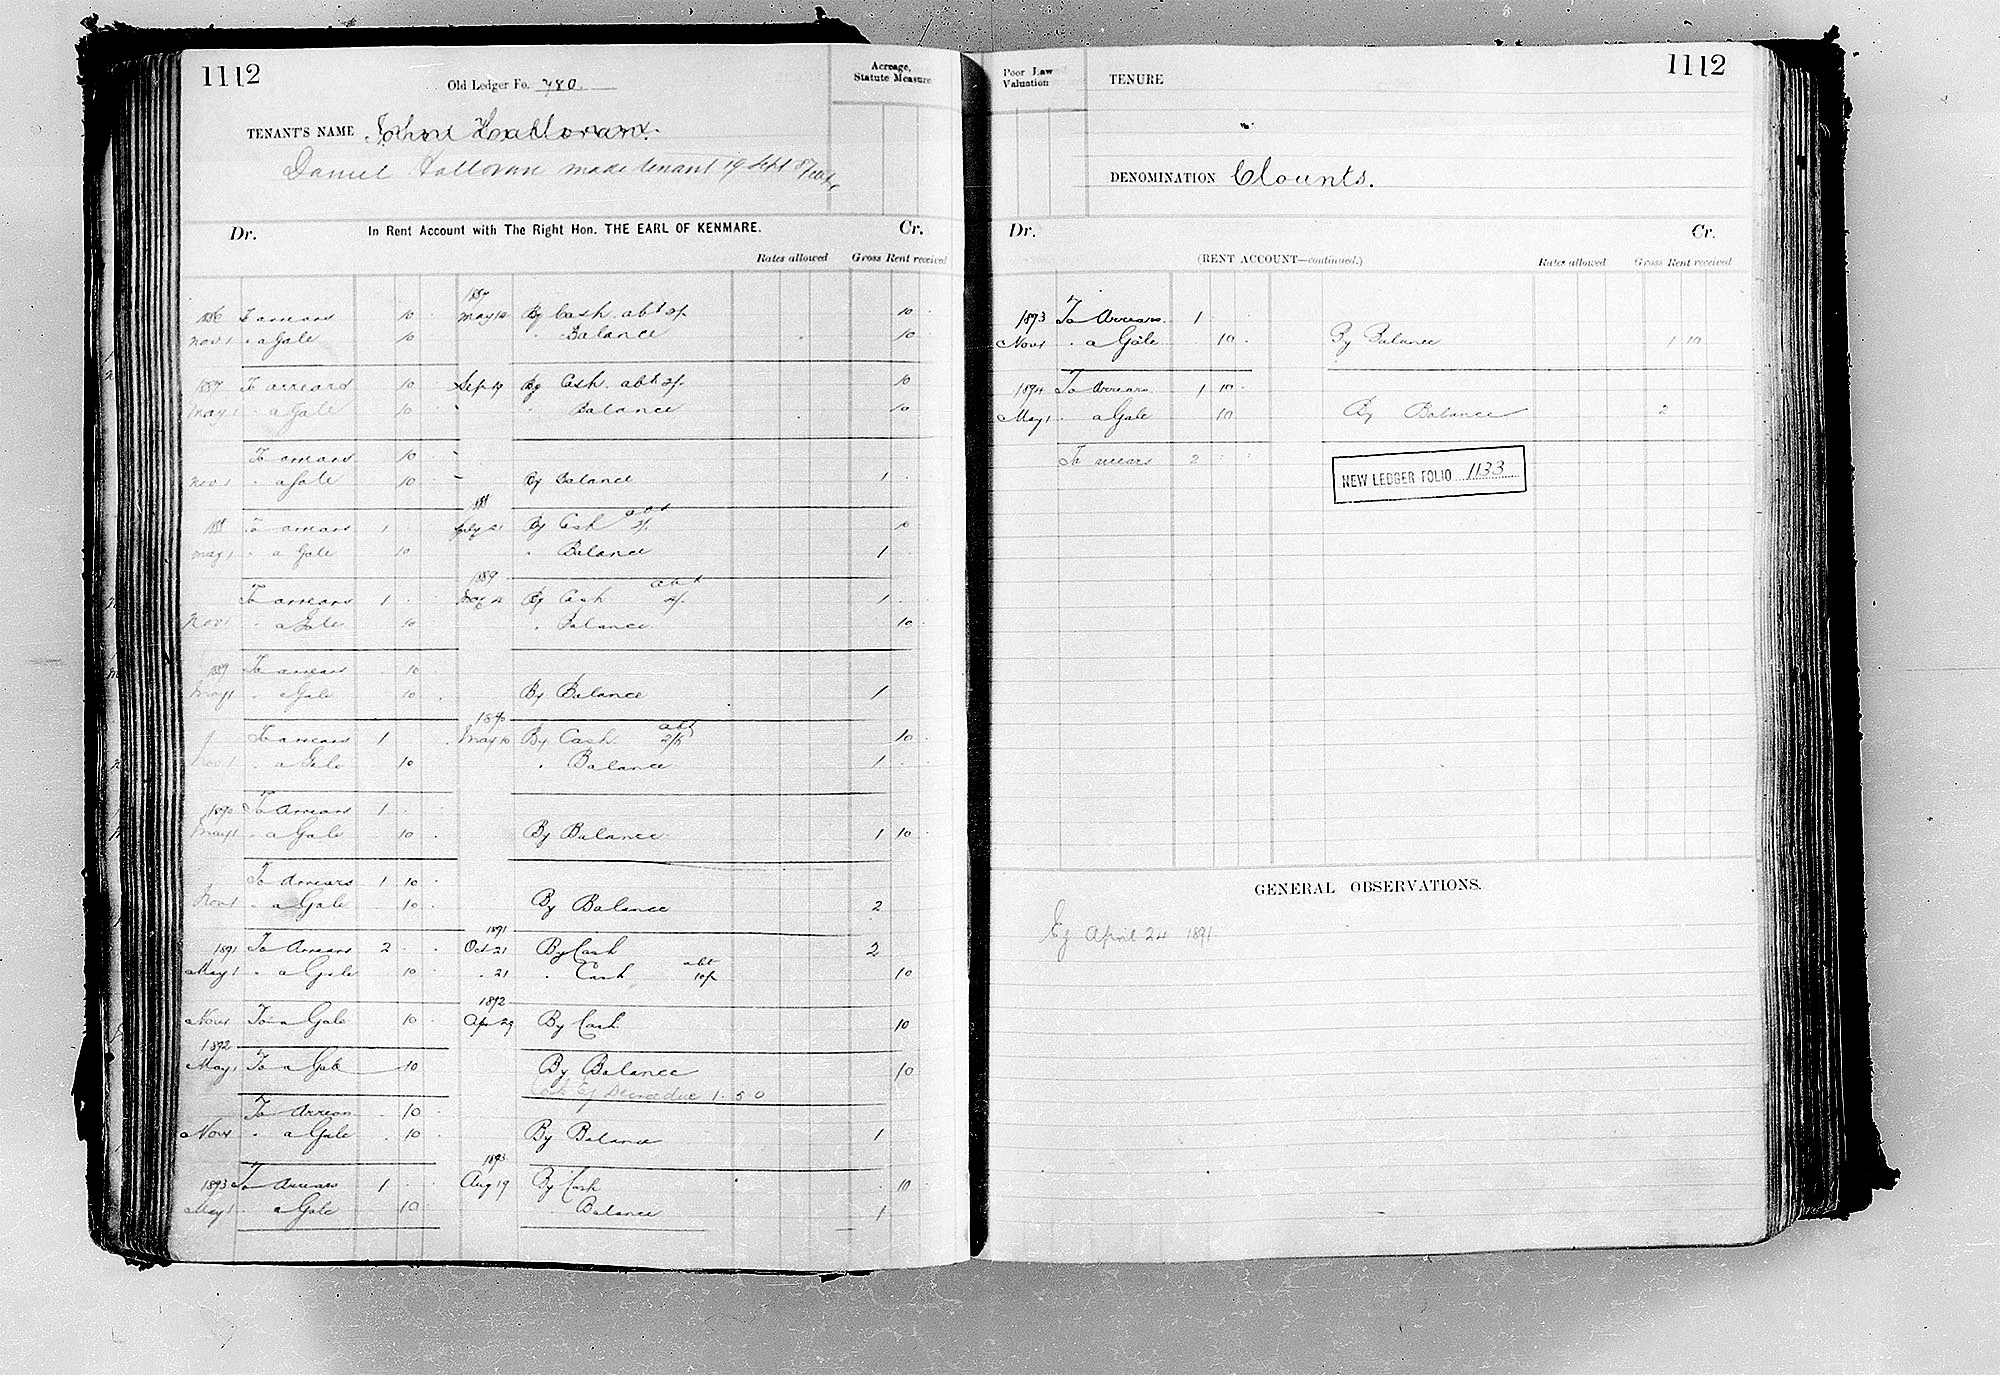 1112
Old Ledger Fo. 780
Acreage,
Statute Measure
TENANT'S NAME John Halloran.
Daniel Halloran made tenant 19 Sept 87
Dr. In Rent Account with The Right Hon. THE EARL OF KENMARE. Cr.
Rates allowed Gross Rent received
1887
1886 To arrears 10 May 14 By Cash abt 2/. 10
Nov 1 " a Gale 10 " Balance 10
1887 To arrears 10 Sep 19 By Cash abt 2/. 10
May 1 " a Gale 10 " Balance 10
To arrears 10
Nov 1 " a Gale 10 By Balance 1
1888
1888 To arrears 1 July 21 By Cash abt 2/. 10
May 1 " a Gale 10 " Balance 1
1889
To arrears 1 By Cash abt 4/. 1
Nov 1 " a Gale 10 " Balance 10
1889 To arrears 10
May 1 " a Gale 10 By Balance 1
1890
To arrears 1 May 10 By Cash abt 2/. 10
Nov 1 " a Gale 10 " Balance 1
1890 To Arrears 1
May 1 " a Gale 10 By Balance 1 10
To Arrears 1 10
Nov 1 " a Gale 10 By Balance 2
1891
1891 To Arrears 2 Oct 21 By Cash 2
May 1 " a Gale 10 " 21 " Cash abt 10/. 10
1892
Nov 1 To a Gale 10 Apr 29 By Cash 10
1892
May 1 To a Gale 10 By Balance 10
Cost Ej Decree due 1. 5 0
To Arrears 10
Nov 1 " a Gale 10 By Balance 1
1893
1893 To Arrears 1 Aug 19 By Cash 10
May 1 a Gale 10 Balance 1
1112
Poor Law
Valuation
TENURE
DENOMINATION Clounts.
Dr. Cr.
(RENT ACCOUNT—continued.) Rates allowed Gross Rent received
1893 To Arrears 1
Nov 1 " a Gale 10 By Balance 1 10
1894 To Arrears 1 10
May 1 a Gale 10 By Balance 2
To arrears 2
NEW LEDGER FOLIO 1133
GENERAL OBSERVATIONS.
Ej April 24 1891